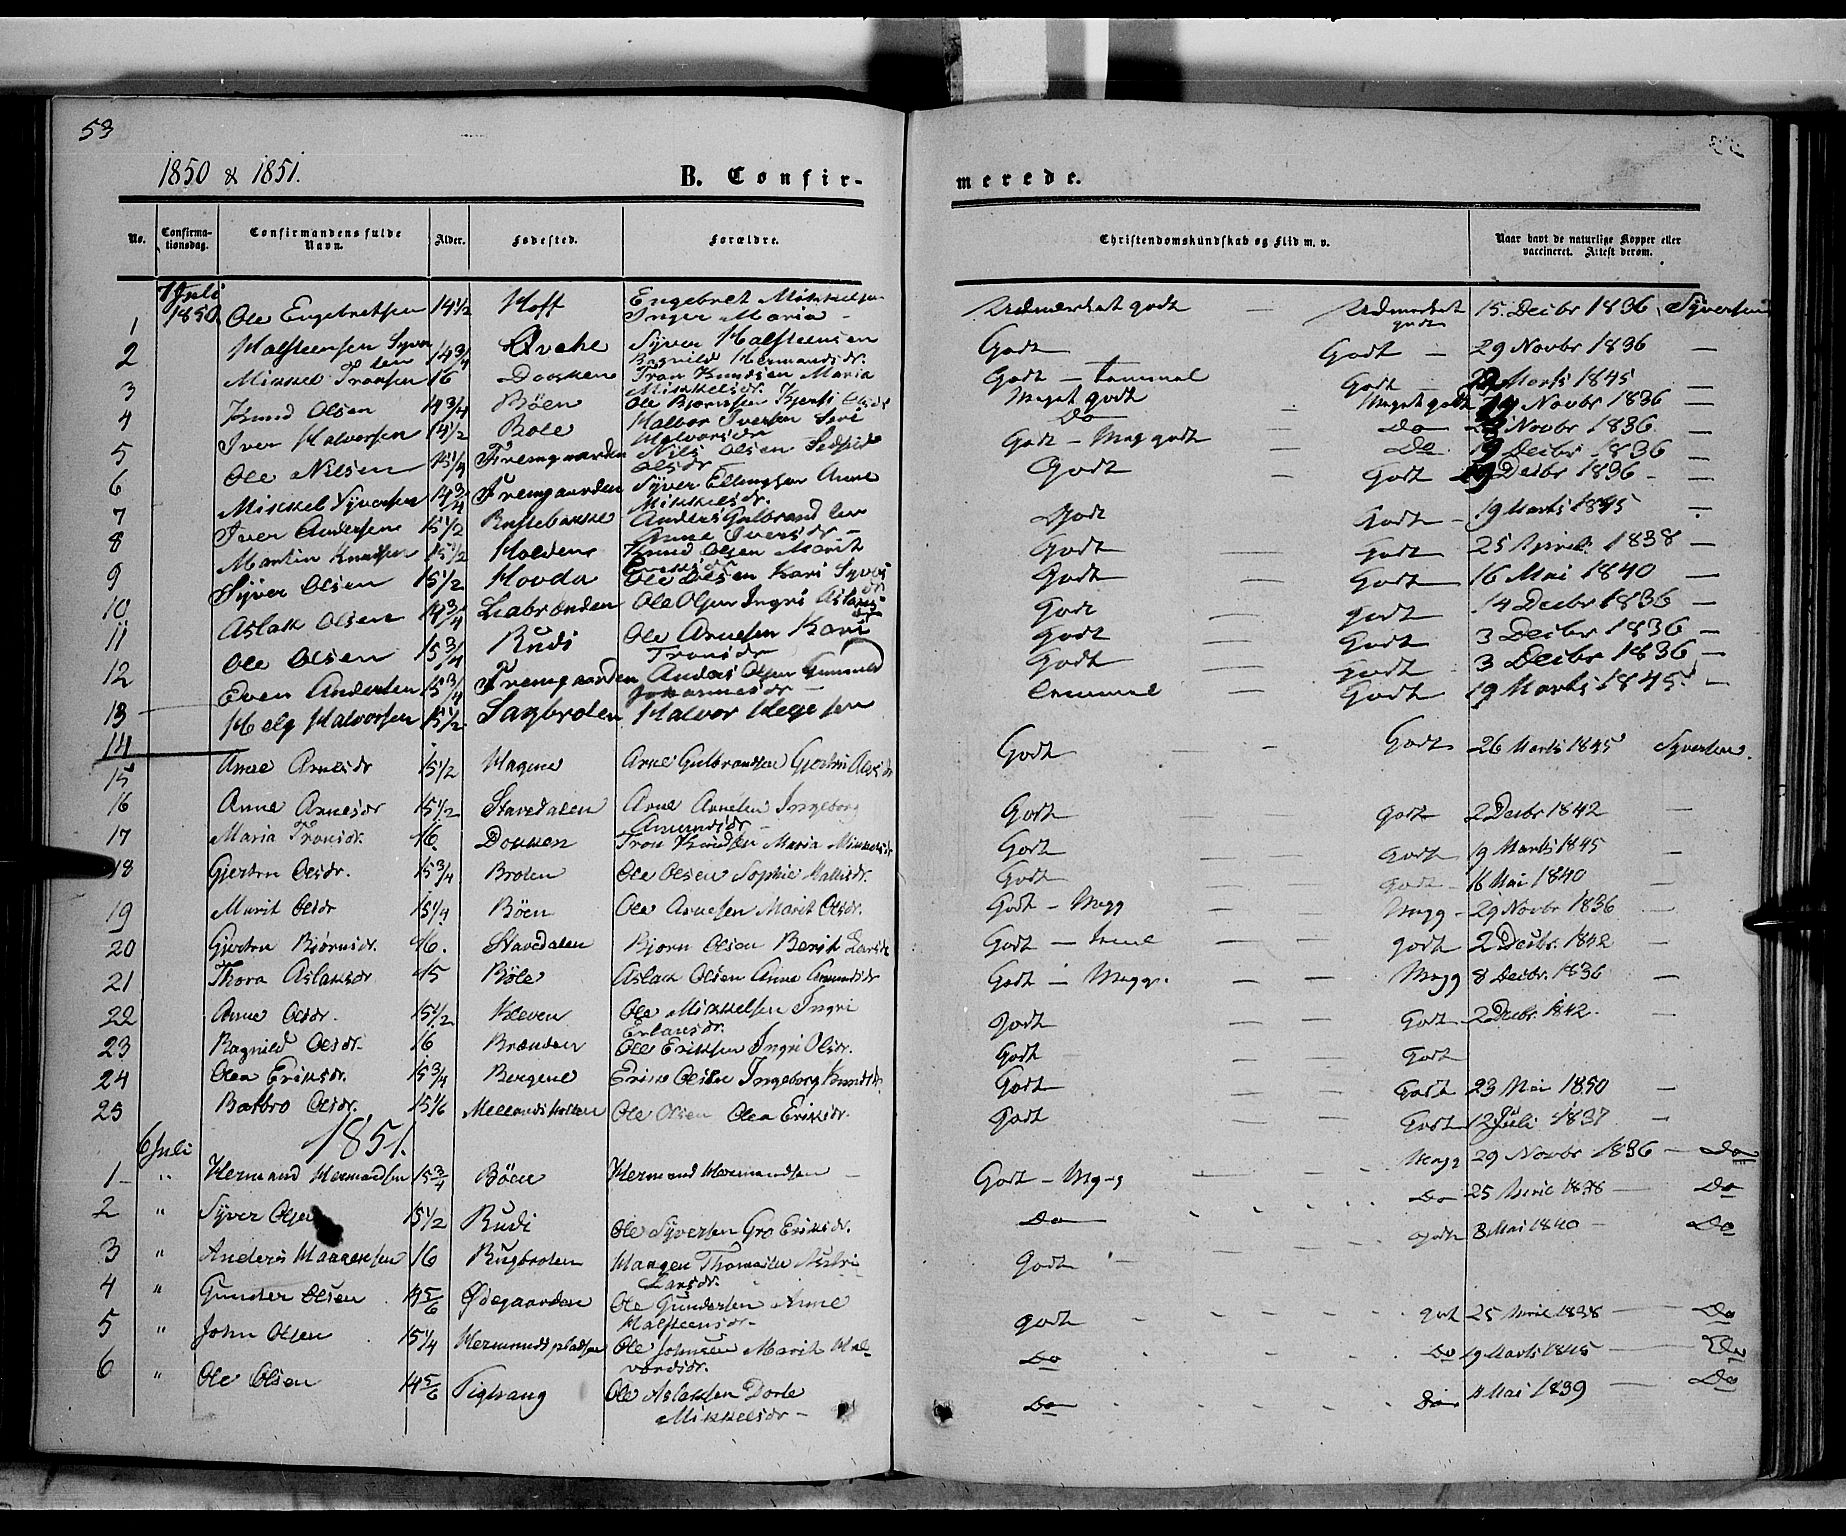 53
1850 & 1851.
B. Confir-
merede.
No. Confirma-tionsdag. Confirmandens fulde Navn. Alder. Fødested. Forældre. Christendomskundskab og Flid m. v. Naar havt de naturlige Kopper eller vaccineret. Attest derom.
7 Juli 1850
1 Ole Engebretsen 14 1/2 Hoff Engebret Mikkelsen Inger Maria - Udmerket godt - Udmerket godt 15 Decbr 1836 Syversen
2 Halsteensen Syver 14 3/4 Øvche Syver Halsteensen Ragnild Hermandsdr. Godt Godt - 29 Novbr 1836 -
3 Mikkel Tronsen 16 Dokken Tron Knudsen Maria Mikkelsdr. Godt - temmel Godt - 19 Marts 1845 -
4 Knud Olsen 14 3/4 Böen Ole Bjørnsen Kjersti Olsdr Meget godt Meget godt 29 Novbr 1836 -
5 Iver Halvorsen 14 1/2 Bole Halvor Iversen Siri Halvorsdr Do - Do Novbr 1836 -
6 Ole Nilsen 15 1/4 Fremgaarden Nils Olsen Olsdr Godt - Meg godt - Do 9 Decbr 1836 -
7 Mikkel Syversen 14 3/4 Fremgaarden Syver Ellingsen Anne Mikkelsdr. Godt Godt 19 Decbr 1836 -
8 Iver Andersen 15 1/2 Anders Gulbrandsen Anne Iversdr - Godt Godt - 19 Marts 1845 -
9 Martin Knudsen 15 1/2 Holden Knud Olsen Marit Eriksdr Godt - Godt 25 April 1838 -
10 Syver Olsen 15 1/2 Hovda Ole Olsen Kari Syversdr Godt - Godt 16 Mai 1840 -
11 Aslak Olsen 14 3/4 Liabrænden Ole Olsen Ingri Aslaksdr Godt - godt 14 Decbr 1836 -
12 Ole Olsen 15 3/4 Rudi Ole Arnesen Kari Tronsdr Godt - Godt 3 Decbr 1836 -
13 Even Andersen 15 3/4 Fremgaarden Anders Olsen Gunnild Johannesdr - Godt - Godt 3 Decbr 1836 -
14 Helg Halvorsen 15 1/2 Sagbroten Halvor Helgesen temmel - Godt 19 Marts 1845 -
15 Anne Arnesdr 15 1/2 Hagene Arne Gulbrandsen Gjertru Olesdr Godt - Godt 26 Marts 1845 Syversen
16 Anne Arnesdr 15 1/2 Stavedalen Arne Arnesen Ingeborg Amundsdr - Godt - godt 2 Decbr 1842 -
17 Maria Tronsdr. 16. Dokken Tron Knudsen Maria Mikkelsdr Godt - Godt 19 Marts 1845
18 Gjertru Olsdr. 15 3/4 Broten Ole Olsen Sophie Mattisdr. Godt - Godt - 16 Mai 1840 -
19 Marit Olsdr 15 1/4 Böen Ole Arnesen Marit Olsdr. Godt - Megg - Megg - 29 Novbr 1836 -
20 Gjertru Bjørnsdr. 16. Stavedalen Bjørn Olsen Berit Larsdr Godt - godt 2 Decbr. 1842 -
21 Thora Aslaksdr 15 Böle Aslak Olsen Anne Amundsdr Godt - Meggo. - Megg 8 Decbr. 1836 -
22 Anne Olsdr. 15 1/2 Kleven Ole Mikkelsen Ingri Erlansdr. Godt - Godt 2 Decbr. 1842. -
23 Ragnild Olsdr. 16 Brænden Ole Eriksen Ingri Olsdr. Godt - Godt
24 Olea Eriksdr. 15 3/4 Bergene Erik Olsen Ingeborg Knudsdr Godt - Godt 23 Mai 1850 -
25 Barbro Olsdr. 15 1/6 Ole Olsen Olea Eriksdr. Godt - Godt 12 Juli 1837 -
6 Juli 1851.
1 " Hermand Hermandsen 15 3/4 Böen Hermand Hermandsen - Godt - Meg-g - Megg 29 Novbr 1836 - Do
2 " Syver Olsen 15 1/2 Rudi Ole Syversen Gro Eriksdr. Do Do 25 April 1838 - Do
3 " Anders 16 Rugbroten Larsdr. Godt - godt 8 Mai 1840 - Do
4 " Gunder Olsen 14 5/6 Ødegaarden Ole Gundersen Anne Halsteensdr. godt godt 25 April 1838 - Do
5 " John Olsen 15 1/4 Hermundspladsen Ole Johnsen Marit Halvordsdr. Do Do 19 Marts 1845 - Do
6 " Ole Olsen 14 5/6 Ole Aslaksen Dorte Mikkelsdr - Do Do 11 Mai 1839 - Do